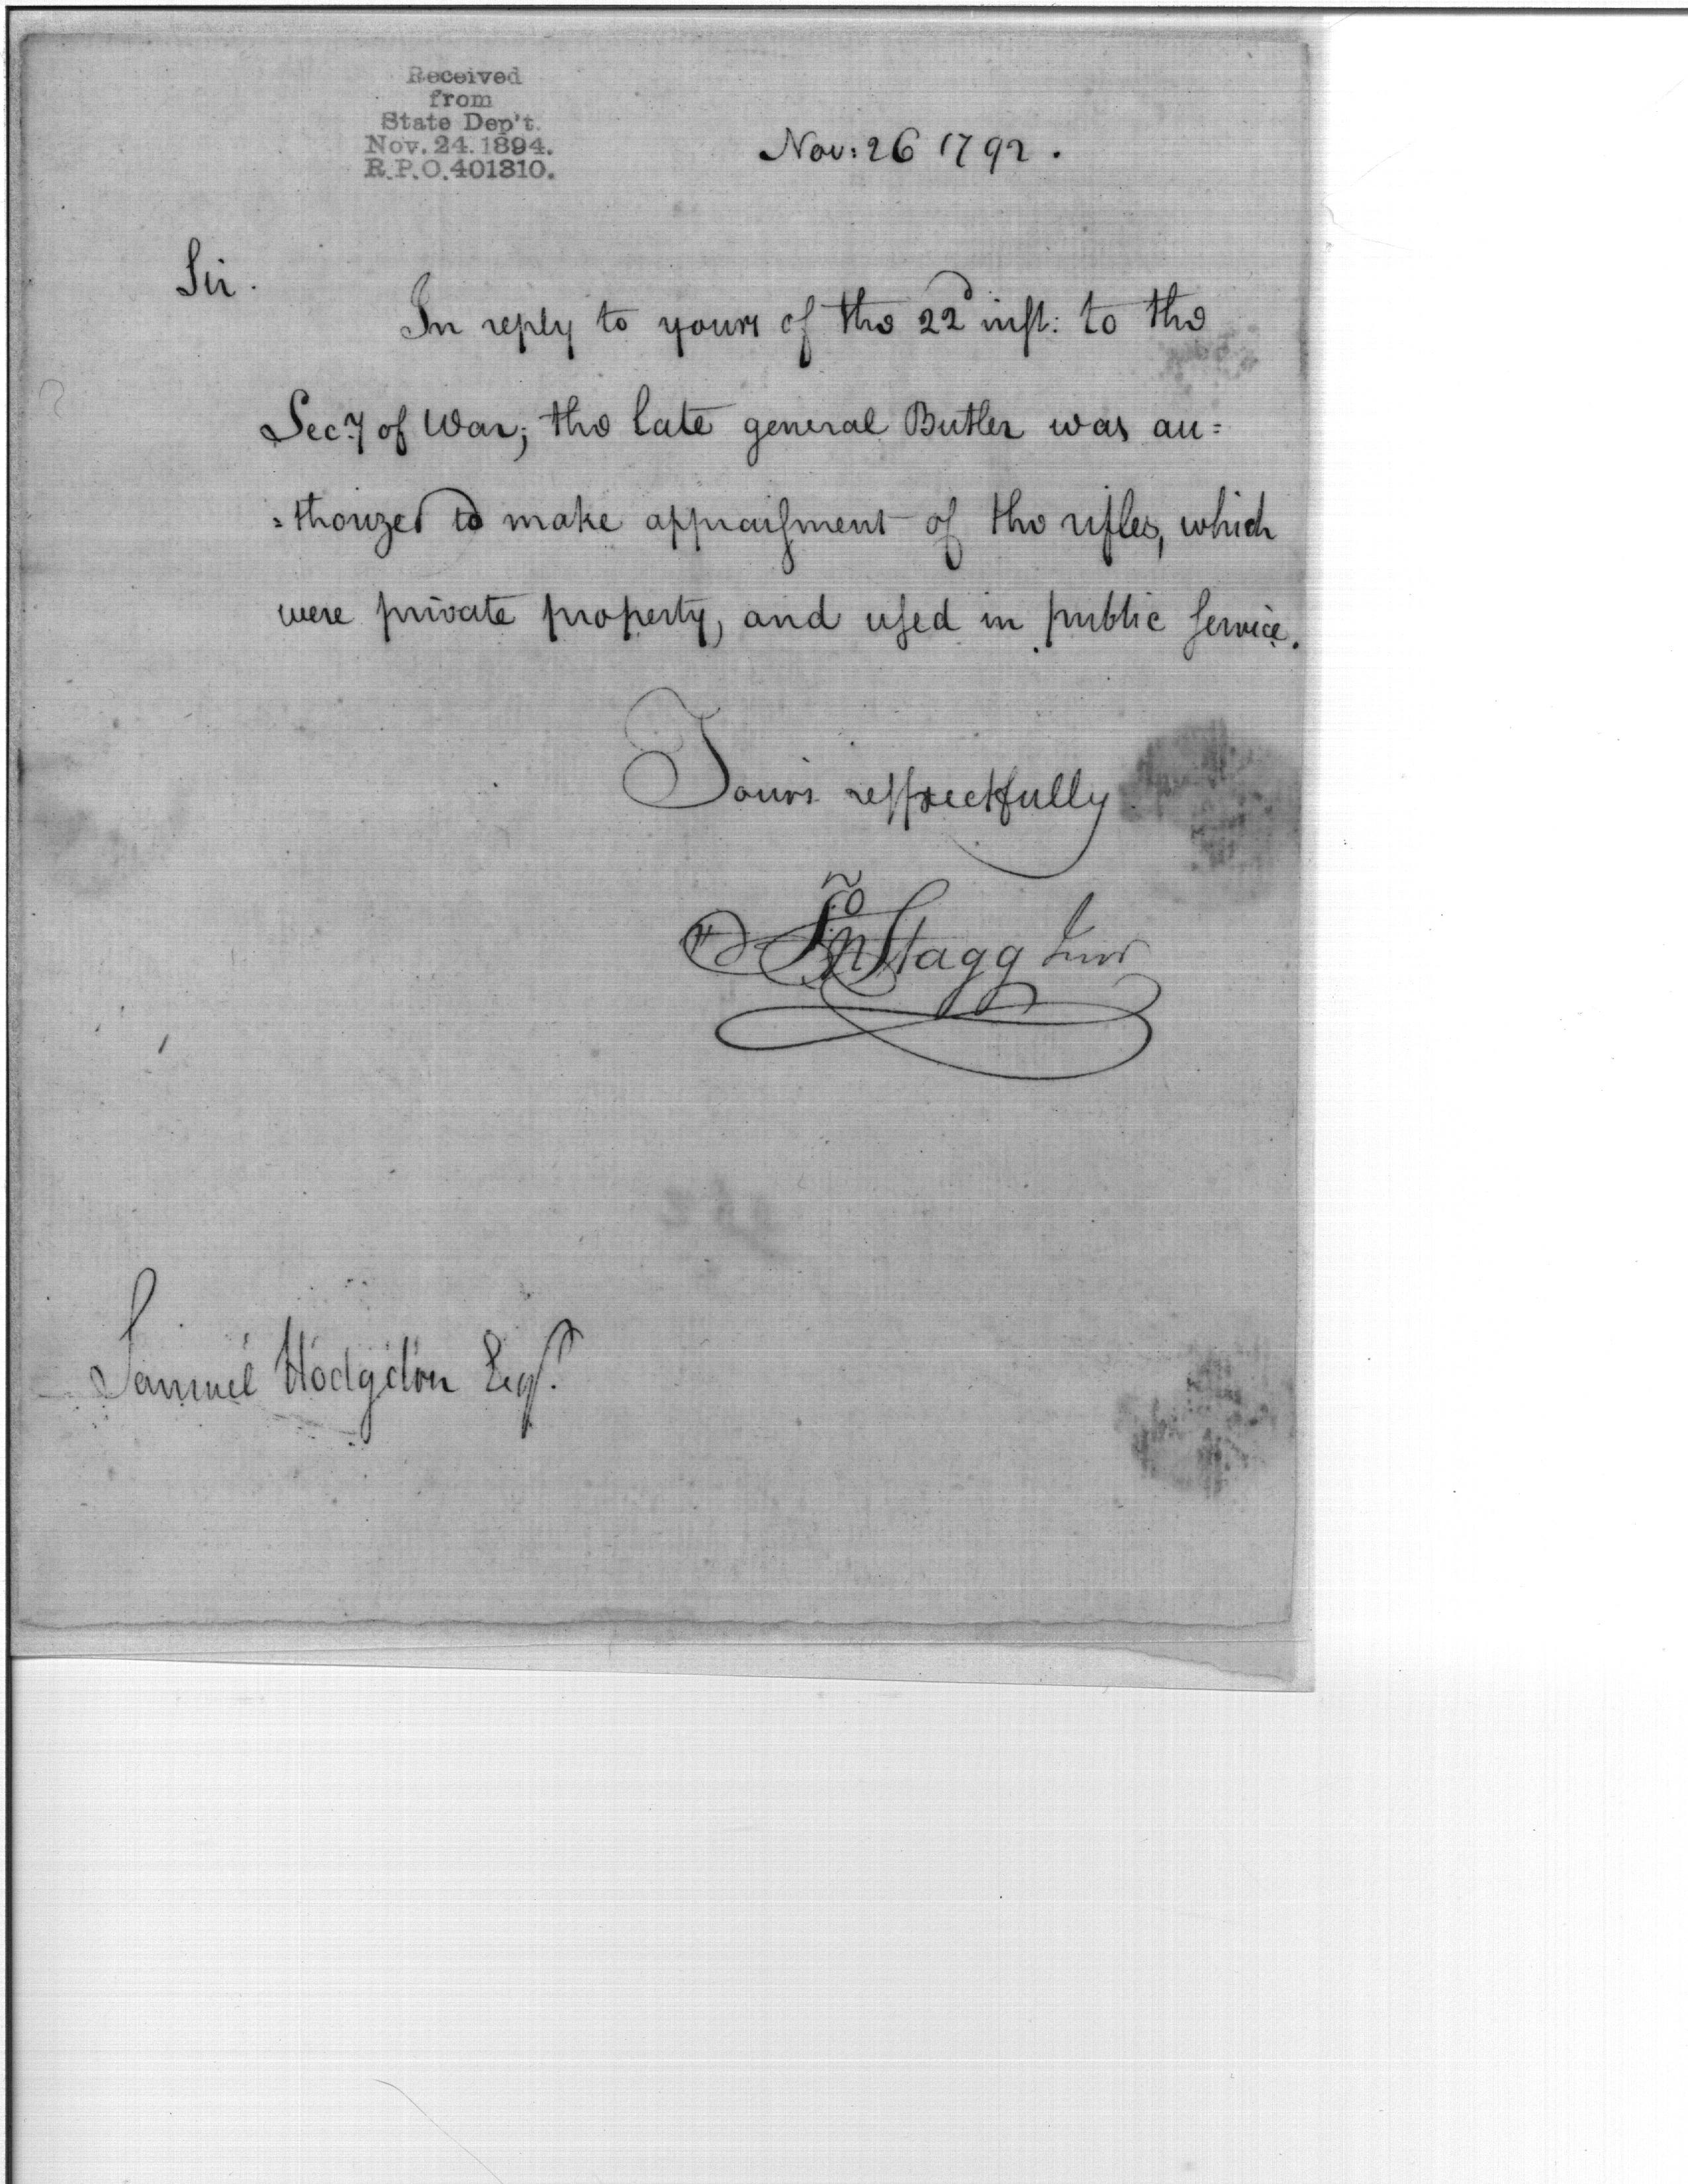 Received
from
State Dep't.
Nov. 24. 1894.
R.P.O. 401310.
Nov: 26 1792.
Sir.
In reply to yours of the 22d inst: to the
Secy of War; the late general Butler was au=
=thorized to make appraisment of the rifles, which
were private property, and used in public service.
Yours respectfully
Jno Stagg Junr
Samuel Hodgdon Esqr.